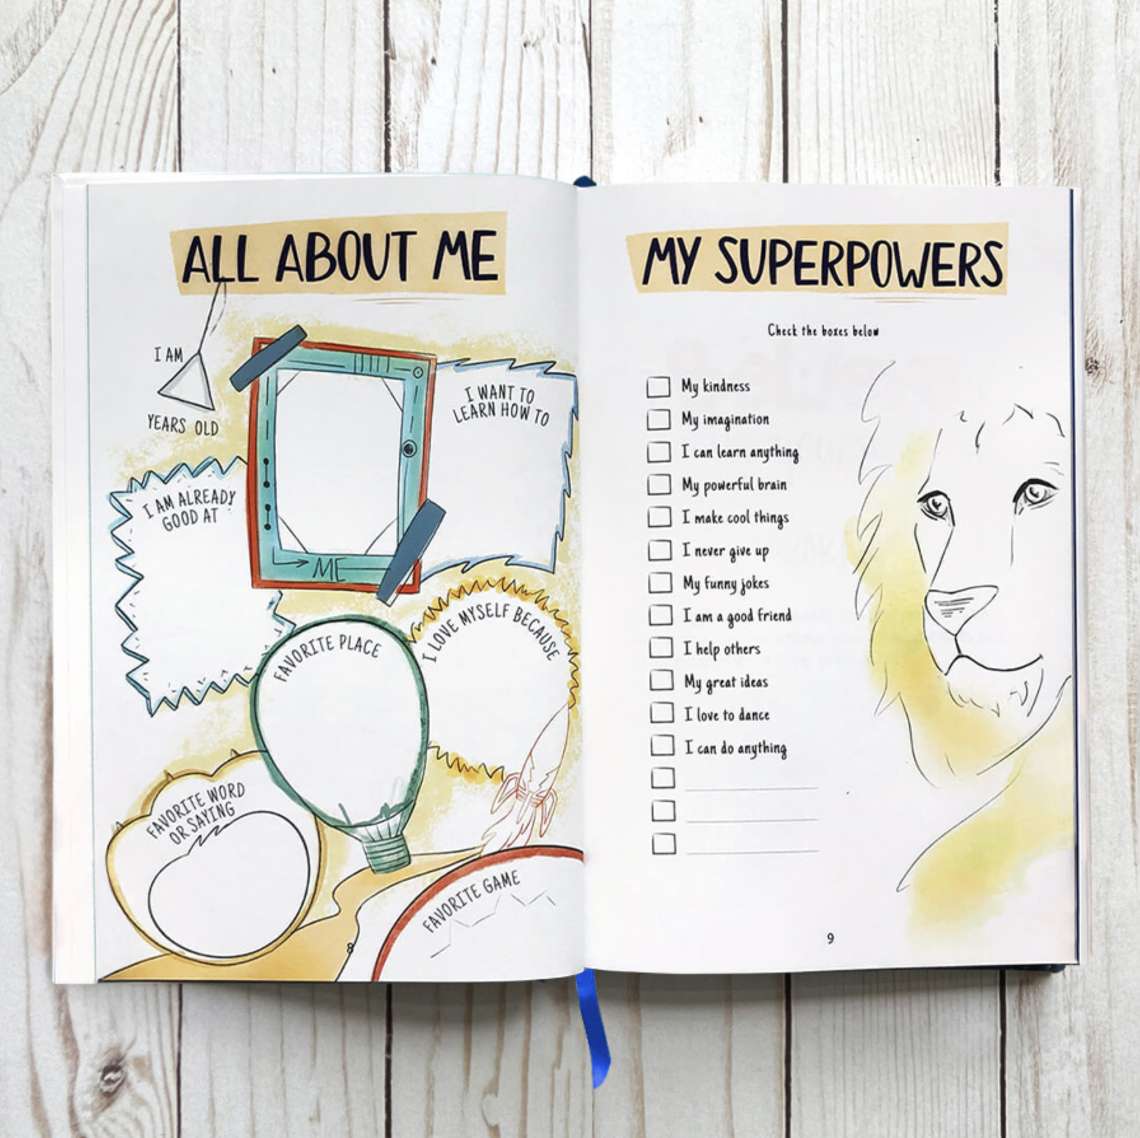 ALL ABOUT ME
I AM
YEARS OLD
I WANT TO
LEARN HOW TO
I AM ALREADY
GOOD AT
ME
I LOVE MYSELF BECAUSE
FAVORITE PLACE
FAVORITE WORD
OR SAYING
FAVORITE GAME
8
MY SUPERPOWERS
Check the boxes below
My kindness
My imagination
I can learn anything
My powerful brain
I make cool things
I never give up
My funny jokes
I am a good friend
I help others
My great ideas
I love to dance
I can do anything
9